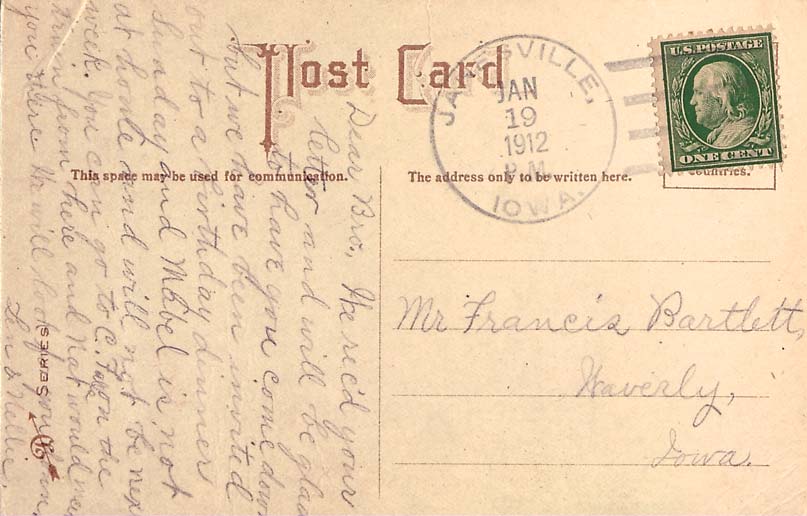 Post Card
This space may be used for communication.
The address only to be written here.
JANESVILLE,
JAN
19
1912
P.M.
IOWA.
U.S. POSTAGE
ONE CENT
countries.
Mr Francis Bartlett,
Waverly,
Iowa.
Dear Bro, We rec'd your
letter and will be glad
to have you come down
but we have been invited
out to a birthday dinner
Sunday and Mabel is not
at home and will not be nex
week. You can go to C. on the
train from here and Nat would
you there We will look for you
& Nellie,
SERIES